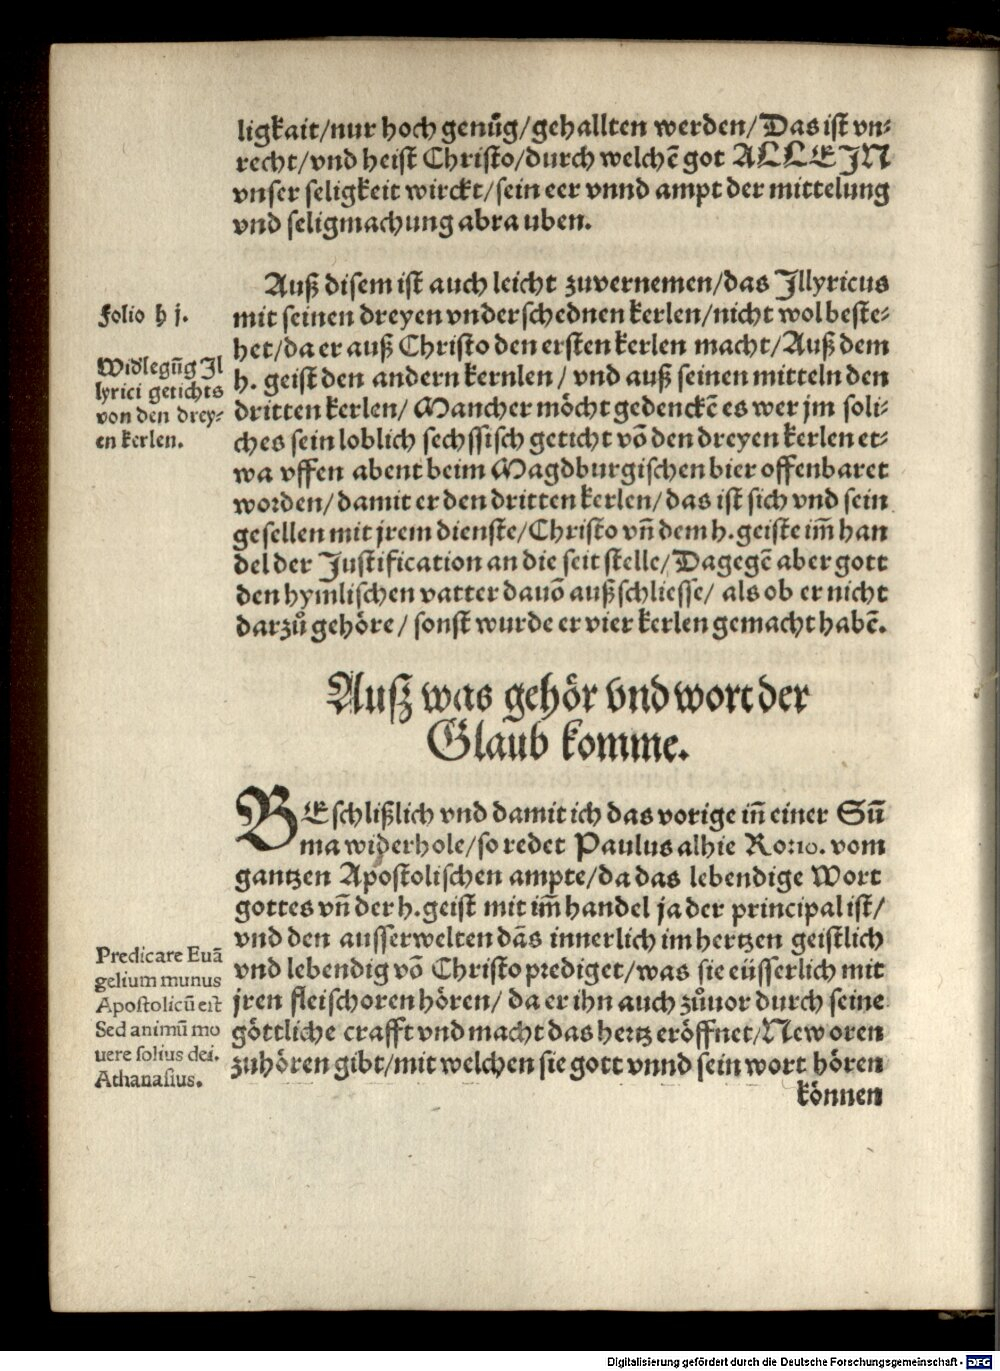 ligkait/nur hoch genůg/gehallten werden/Das ist vn⸗
recht/vnd heist Christo/durch welchē got ALLEJN
vnser seligkeit wirckt/sein eer vnnd ampt der mittelung
vnd seligmachung abrauben.
Auß disem ist auch leicht zuvernemen/das Jllyricus
mit seinen dreyen vnderschednen kerlen/nicht wol beste⸗
het/da er auß Christo den ersten kerlen macht/Auß dem
h. geist den andern kernlen/ vnd auß seinen mitteln den
dritten kerlen/ Mancher möcht gedenckē es wer jm soli⸗
ches sein loblich sechssisch geticht vō den dreyen kerlen et⸗
wa vffen abent beim Magdburgischen bier offenbaret
worden/damit er den dritten kerlen/das ist sich vnd sein
gesellen mit jrem dienste/Christo vñ dem h.geiste im̄ han
del der Justification an die seit stelle/Dagegē aber gott
den hymlischen vatter dauō außschliesse/ als ob er nicht
darzů gehöre/ sonst wurde er vier kerlen gemacht habē.
Folio h j.
Widlegūg Jl
lyrici getichts
von den drey⸗
en kerlen.
Auß was gehör vnd wort der
Glaub komme.
BEschlißlich vnd damit ich das vorige iñ einer Sū
ma widerhole/so redet Paulus alhie Rom. vom
gantzen Apostolischen ampte/da das lebendige Wort
gottes vñ der h.geist mit im̄ handel ja der principal ist/
vnd den ausserwelten dās innerlich im hertzen geistlich
vnd lebendig vō Christo prediget/was sie eüsserlich mit
jren fleischoren hören/ da er ihn auch zůuor durch seine
göttliche crafft vnd macht das hertz eröffnet/New oren
zuhören gibt/mit welchen sie gott vnnd sein wort hören
können
Predicare Euā
gelium munus
Apostolicū est
Sed animū mo
uere solius dei.
Athanasius.
Digitalisierung gefördert durch die Deutsche Forschungsgemeinschaft - DFG